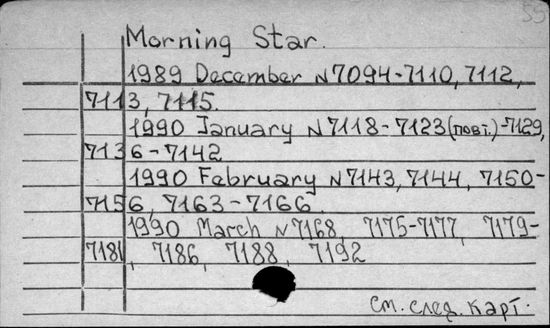 55
Morning Star.
1989 December N7094-7110, 7112,
7113, 7115.
1990 January N7118-7123(повт.)-7129,
7136-7142
1990 February N7143, 7144, 7150-
7156, 7163-7166.
1990 March N7168, 7175-7177, 7179-
7181, 7186, 7188, 7192
См. след. карт.